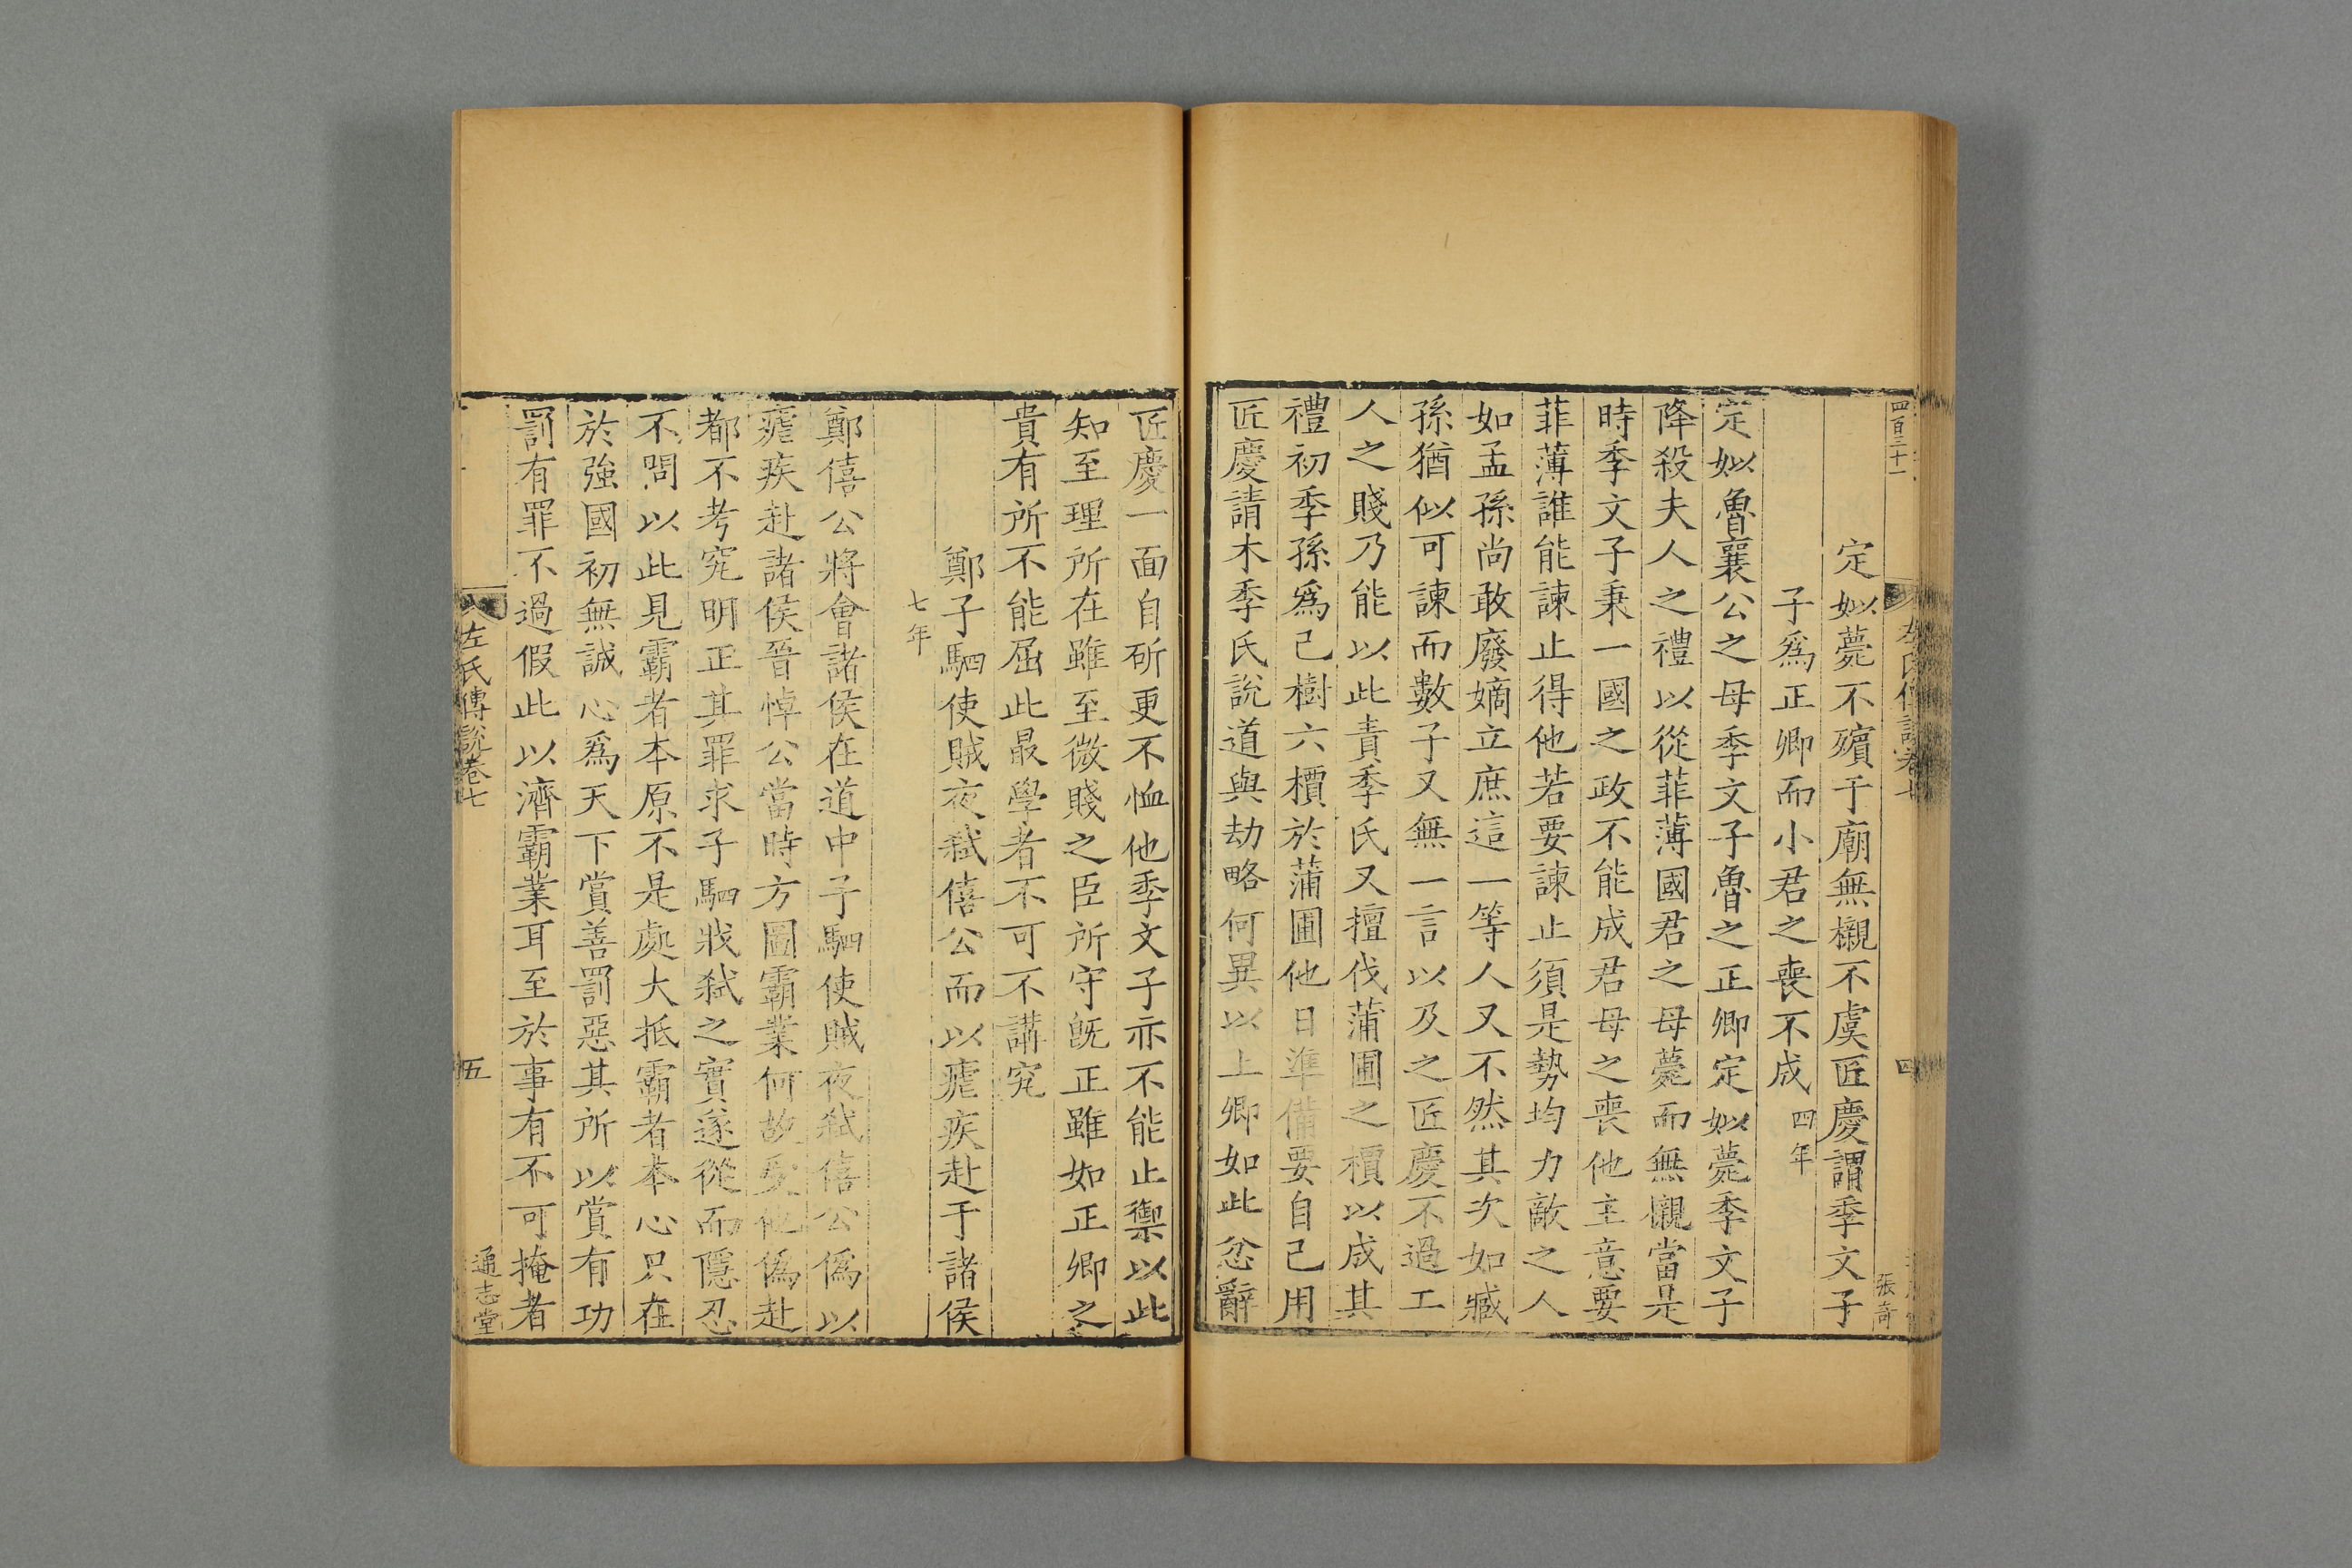 四百三十一
左氏傳說卷七
四
張奇
定姒薨不殯于廟無櫬不虞匠慶謂季文子
子爲正卿而小君之喪不成四年
定姒魯襄公之母季文子魯之正卿定姒薨季文子
降殺夫人之禮以從菲薄國君之母薨而無櫬當是
時季文子秉一國之政不能成君母之喪他主意要
菲薄誰能諫止得他若要諫止須是勢均力敵之人
如孟孫尚敢廢嫡立庶這一等人又不然其次如臧
孫猶似可諫而數子又無一言以及之匠慶不過工
人之賤乃能以此責季氏又擅伐蒲圃之檟以成其
禮初季孫爲己樹六檟於蒲圃他日準備要自己用
匠慶請木季氏說道與劫略何異以上卿如此忿辭
匠慶一面自斫更不恤他季文子亦不能止禦以此
知至理所在雖至微賤之臣所守旣正雖如正卿之
貴有所不能屈此最學者不可不講究
鄭子駟使賊夜弑僖公而以瘧疾赴于諸侯
七年
鄭僖公將會諸侯在道中子駟使賊夜弑僖公僞以
瘧疾赴諸侯晉悼公當時方圖霸業何故受他僞赴
都不考究明正其罪求子駟戕弑之實遂從而隱忍
不問以此見霸者本原不是處大抵霸者本心只在
於強國初無誠心爲天下賞善罰惡其所以賞有功
罰有罪不過假此以濟霸業耳至於事有不可掩者
左氏傳說卷七
五
通志堂